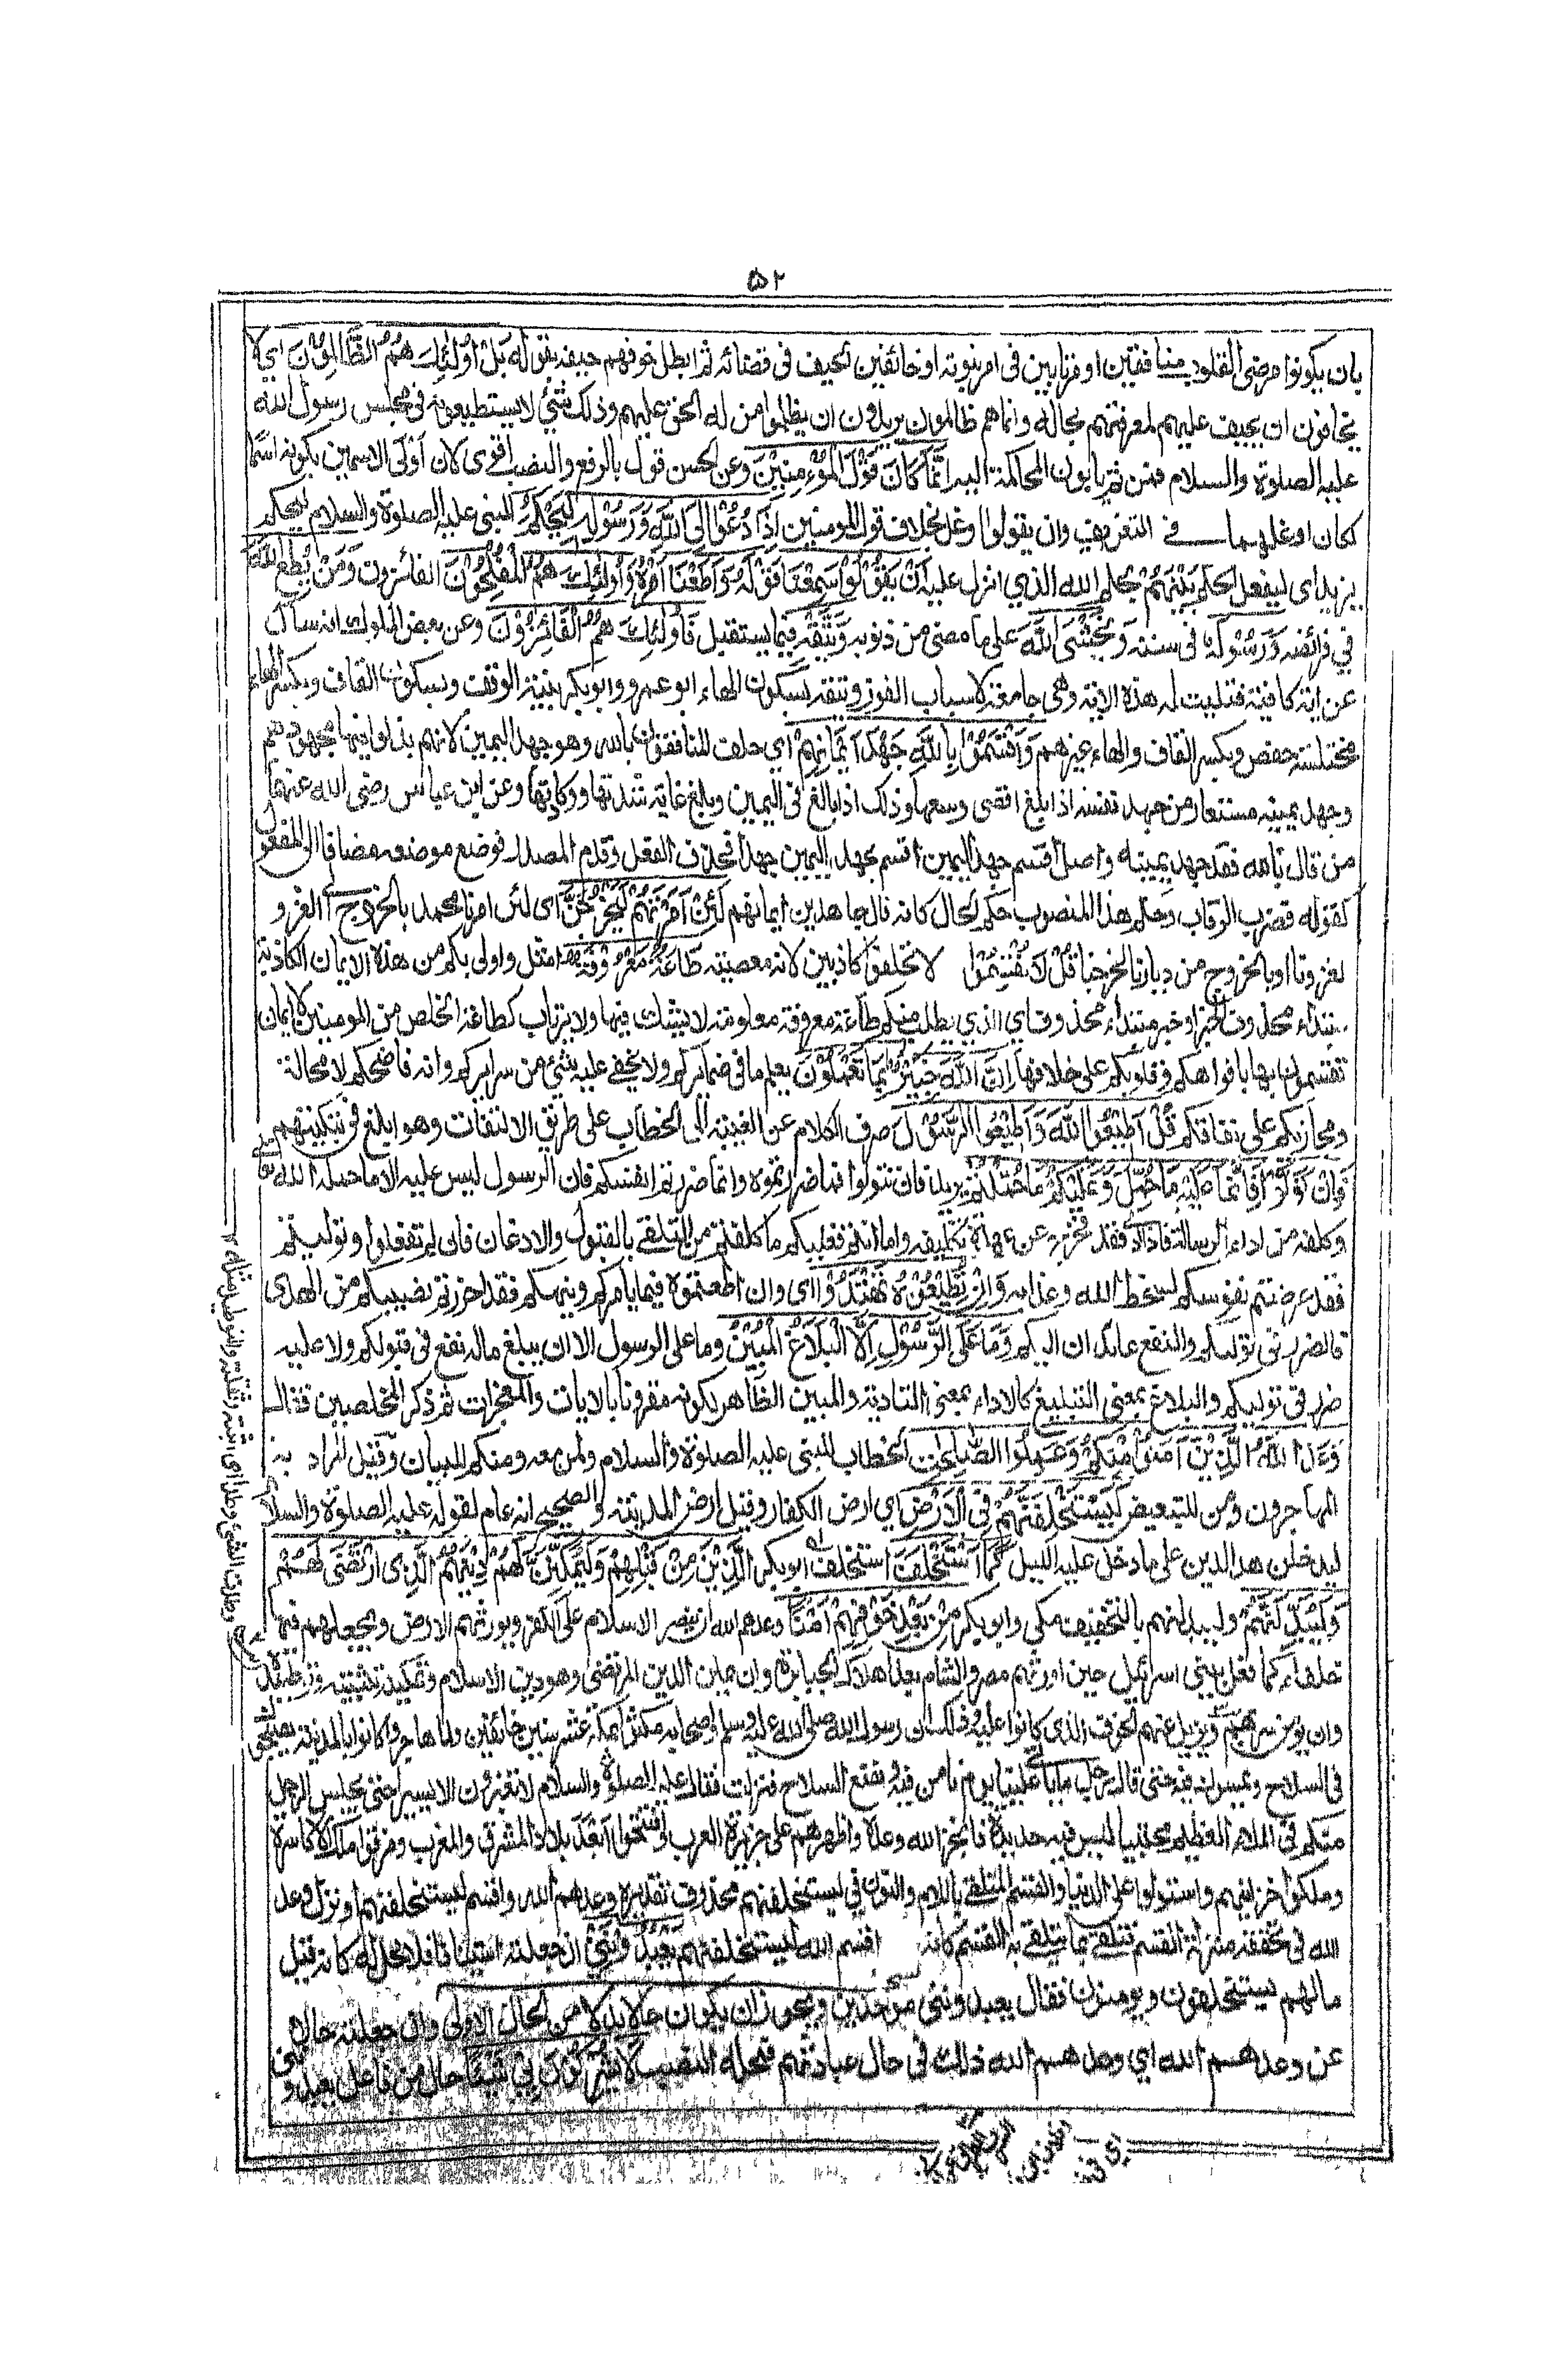 ٥٢
بان يكونوا مرضى القلوب منافقين او مرتابين فى امر نبوته او خائفين الحيف فى قضائه ثم ابطل خوفهم حيفه بقوله بَلْ اُولٰٓئِكَ هُمُ الظَّالِمُوْنَ اى لا
يخافون ان يحيف عليهم لمعرفتهم بحاله وانما هم ظالمون يريدون ان يظلموا من له الحق عليهم وذلك شئ لا يستطيعونه فى مجلس رسول الله
عليه الصلوة والسلام فمن ثم يابون المحاكمة اليه اِنَّمَا كَانَ قَوْلَ الْمُؤْمِنِيْنَ وعن الحسن قول بالرفع والنصب اقوى لان اَوْلَى الاسمين بكونه اسما
لكان اوغلهما فى التعريف وان يقولوا اوغل بخلاف قول المومنين اِذَا دُعُوْا اِلَى اللّٰهِ وَرَسُوْلِهٖ لِيَحْكُمَ النبى عليه الصلوة والسلام ليحكم
يزيد اى ليفعل الحكم بَيْنَهُمْ بحكم الله الذى انزل عليه اَنْ يَقُوْلُوْا سَمِعْنَا قوله وَاَطَعْنَا امره وَاُولٰٓئِكَ هُمُ الْمُفْلِحُوْنَ الفائزون وَمَنْ يُطِعِ اللّٰهَ
فى فرائضه وَرَسُوْلَهٗ فى سننه وَيَخْشَى اللّٰهَ على ما مضى من ذنوبه وَيَتَّقْهِ فيما يستقبل فَاُولٰٓئِكَ هُمُ الْفَآئِزُوْنَ وعن بعض الملوك انه سال
عن اية كافية فتليت له هذه الاية وهى جامعة لاسباب الفوز ويتقه بسكون الهاء ابو عمرو وابو بكر بنية الوقف وبسكون القاف وبكسر الهاء
مختلسة حفص وبكسر القاف والهاء غيرهم وَاَقْسَمُوْا بِاللّٰهِ جَهْدَ اَيْمَانِهِمْ اى حلف المنافقون بالله وهو جهد اليمين لانهم بذلوا فيها مجهودهم
وجهد يمينه مستعار من جهد نفسه اذا بلغ اقصى وسعها وذلك اذا بالغ فى اليمين وبلغ غاية شدتها ووكادتها وعن ابن عباس رضى الله عنهما
من قال بالله فقد جهد يمينه واصل اقسم جهد اليمين اقسم بجهد اليمين جهدا فحذف الفعل وقدم المصدر فوضع موضعه مضافا الى المفعول
كقوله فضرب الرقاب وحكم هذا المنصوب حكم الحال كانه قال جاهدين ايمانهم لَئِنْ اَمَرْتَهُمْ لَيَخْرُجُنَّ اى لئن امرنا محمد بالخروج الى الغزو
لغزونا او بالخروج من ديارنا لخرجنا قُلْ لَا تُقْسِمُوْا لا تحلفوا كاذبين لانه معصية طَاعَةٌ مَعْرُوْفَةٌ امثل واولى بكم من هذه الايمان الكاذبة
مبتداء محذوف الخبر او خبر مبتداء محذوف اى الذى يطلب منكم طاعة معروفة معلومة لا يشك فيها ولا يرتاب كطاعة الخلص من المومنين لا ايمان
تقسمون بها بافواهكم وقلوبكم على خلافها اِنَّ اللّٰهَ خَبِيْرٌ بِمَا تَعْمَلُوْنَ يعلم ما فى ضمائركم ولا يخفى عليه شئ من سرائركم وانه فاضحكم لا محالة
ومجازيكم على نفاقكم قُلْ اَطِيْعُوا اللّٰهَ وَاَطِيْعُوا الرَّسُوْلَ صرف الكلام عن الغيبة الى الخطاب على طريق الالتفات وهو ابلغ فى تبكيتهم
فَاِنْ تَوَلَّوْا فَاِنَّمَا عَلَيْهِ مَا حُمِّلَ وَعَلَيْكُمْ مَا حُمِّلْتُمْ يريد فان تتولوا فما ضررتموه وانما ضررتم انفسكم فان الرسول ليس عليه الا ما حمله الله تعالى
وكلفه من اداء الرسالة فاذا ادى فقد خرج عن عهدة تكليفه واما انتم فعليكم ما كلفتم من التلقى بالقبول والاذعان فان لم تفعلوا وتوليتم
فقد عرضتم نفوسكم لسخط الله وعذابه وَاِنْ تُطِيْعُوْهُ تَهْتَدُوْا اى وان اطعتموه فيما يامركم وينهاكم فقد احرزتم نصيبكم من الهدى
فالضرر فى توليكم والنفع عائد ان اليكم وَمَا عَلَى الرَّسُوْلِ اِلَّا الْبَلَاغُ الْمُبِيْنُ وما على الرسول الا ان يبلغ ماله نفع فى قبولكم ولا عليه
ضرر فى توليكم والبلاغ بمعنى التبليغ كالاداء بمعنى التادية والمبين الظاهر لكونه مقرونا بالايات والمعجزات ثم ذكر المخلصين فقال
وَعَدَ اللّٰهُ الَّذِيْنَ اٰمَنُوْا مِنْكُمْ وَعَمِلُوا الصّٰلِحٰتِ الخطاب للنبى عليه الصلوة والسلام ولمن معه ومنكم للبيان وقيل المراد به
المهاجرون ومن للتبعيض لَيَسْتَخْلِفَنَّهُمْ فِى الْاَرْضِ اى ارض الكفار وقيل ارض المدينة والصحيح انه عام لقوله عليه الصلوة والسلام
ليدخلن هذا الدين على ما دخل عليه الليل كَمَا اسْتَخْلَفَ استخلف ابو بكر الَّذِيْنَ مِنْ قَبْلِهِمْ وَلَيُمَكِّنَنَّ لَهُمْ دِيْنَهُمُ الَّذِى ارْتَضٰى لَهُمْ
وَلَيُبَدِّلَنَّهُمْ وليبدلنهم بالتخفيف مكى وابو بكر مِنْ بَعْدِ خَوْفِهِمْ اَمْنًا وعدهم الله ان ينصر الاسلام على الكفر ويورثهم الارض ويجعلهم فيها
خلفاء كما فعل ببنى اسرائيل حين اورثهم مصر والشام بعد اهلاك الجبابرة وان يمكن الدين المرتضى وهو دين الاسلام وتمكينه تثبيته وتوطيده
وان يؤمن سربهم ويزيل عنهم الخوف الذى كانوا عليه وذلك ان رسول الله صلى الله عليه وسلم واصحابه مكثوا بمكة عشر سنين خائفين ولما هاجروا كانوا بالمدينة يصبحون
فى السلاح ويمسون فيه حتى قال رجل ما ياتى علينا يوم نامن فيه ونضع السلاح فنزلت فقال عليه الصلوة والسلام لا تغبرون الا يسيرا حتى يجلس الرجل
منكم فى الملاء العظيم محتبيا ليس فيه حديدة فانجز الله وعده واظهرهم على جزيرة العرب وافتتحوا ابعد بلاد المشرق والمغرب ومزقوا ملك الاكاسرة
وملكوا خزائنهم واستولوا على الدنيا والقسم المتلقى باللام والنون فى ليستخلفنهم محذوف تقديره وعدهم الله واقسم ليستخلفنهم او نزل وعد
الله فى تحققه منزلة القسم فتلقى بما يتلقى به القسم كانه اقسم الله ليستخلفنهم يَعْبُدُوْنَنِىْ ان جعلته استينافا فلا محل له كانه قيل
مالهم يستخلفون ويومنون فقال يعبدوننى موحدين ويجوز ان يكون حالا بدلا من الحال الاولى وان جعلته حالا
عن وعدهم الله اى وعدهم الله ذلك فى حال عبادتهم فمحله النصب لَا يُشْرِكُوْنَ بِىْ شَيْئًا حال من فاعل يعبدون